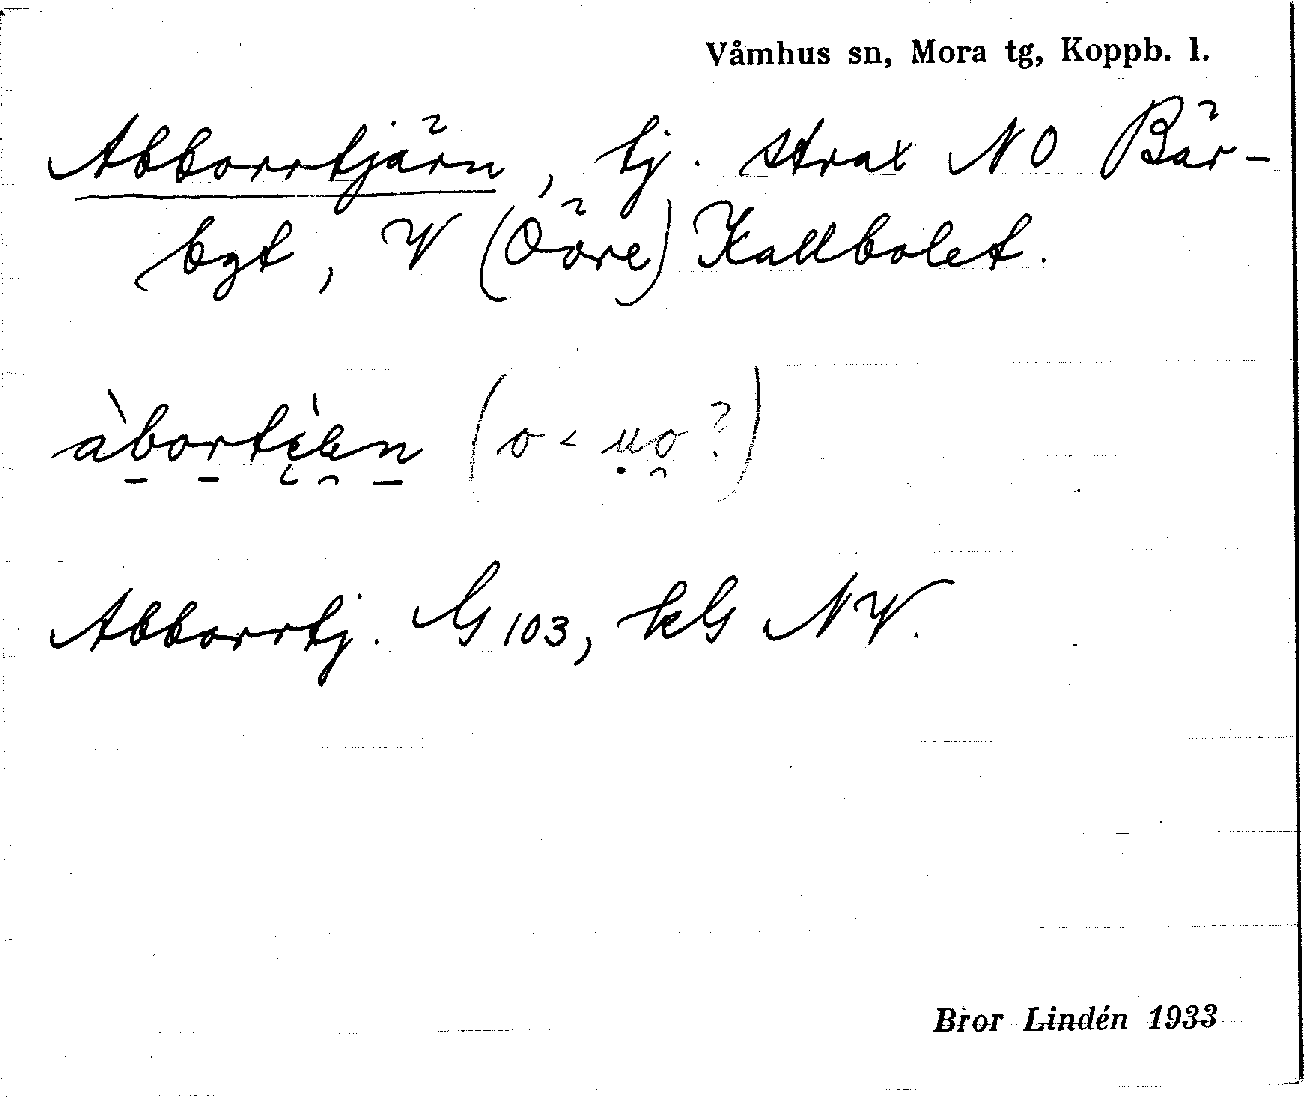 Våmhus sn, Mora tg, Koppb. l.
Abborrtjärn, tj. strax NO Bär-
bgt, V (Övre) Kallbolet.
àbortìen (o < uo?)
Abborrtj. G 103, kG NV.
Bror Lindén 1933